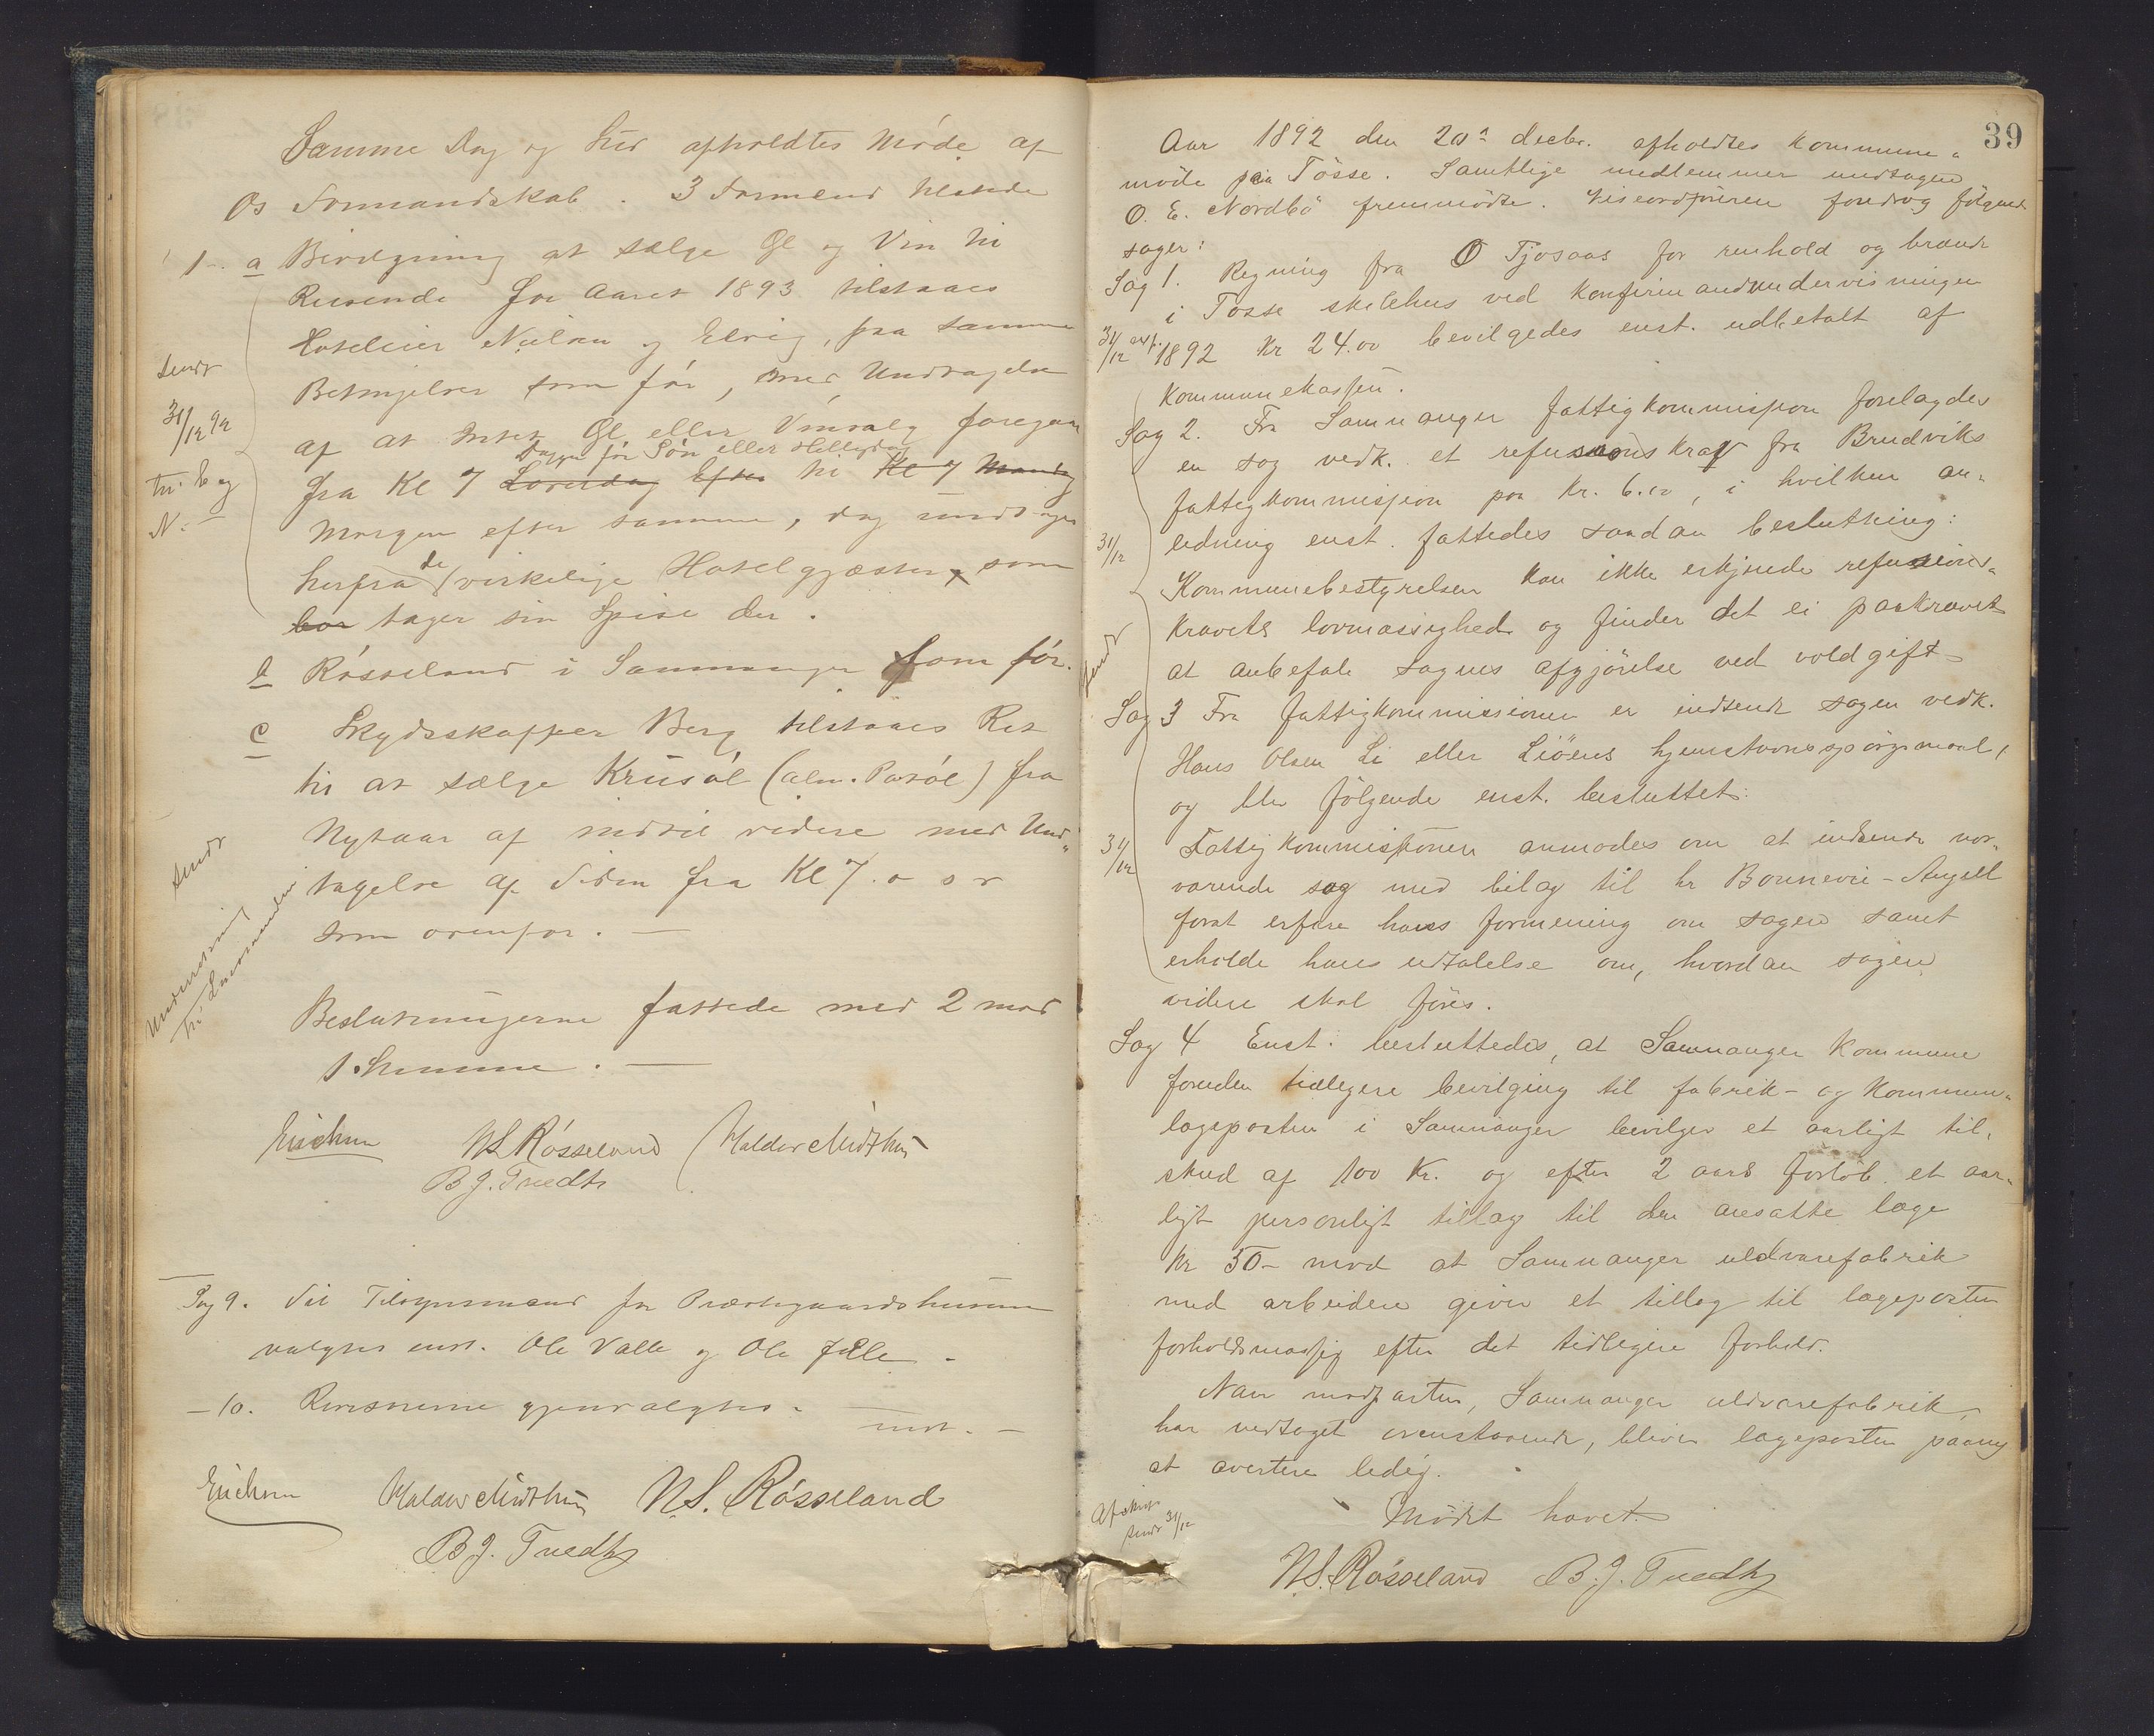 Samme Dag og Sted afholdtes Møde af
Os Formandskab. 3 Formænd tilstede
1. a Bevilgning at sælge Øl og Vin til
Reisende for Aaret 1893 tilstaaes
Hoteleier Nielsen og Elvig, paa samme
Betingelser som før, med Undtagelse
af at intet Øl eller Vinsalg foregaar
Dagen før Søn eller Helligdag
fra Kl 7 Løverdag Efter til Kl 7 Mandag
Morgen efter samme, dog undtages
herfra de virkelige Hotelgjæster, som
bor tager sin Spise der.
Sendt
31/12 92
til E og
N.
b Røsseland i Samnanger som før.
c Skydsskaffer Berg tilstaaes Ret
til at sælge Krusøl (alm. Patøl) fra
Nytaar af indtil videre med Und-
tagelse af Tiden fra Kl 7. o s v
som ovenfor. —
Sendt
Underretning
til Lensmanden
Beslutningerne fattede med 2 mod
1 Stemme. —
Erichsen N.S. Røsseland Haldor Midthun
B J. Tvedt
Sag 9. Til Tilsynsmænd for Præstegaardshusene
valgtes enst. Ole Valle og Ole Fjelle.
— 10. Revisorerne gjenvalgtes.
enst. —
Erichsen Haldor Midthun N S. Røsseland
B J. Tvedt
39
Aar 1892 den 20de decbr. afholdtes kommune-
møde paa Tøsse. Samtlige medlemmer undtagen
O. E. Nordbø fremmødte. Viseordføreren foredrog følgende
sager:
Sag 1. Regning fra O Tjosaas for renhold og brænde
i Tøsse skolehus ved konfirmandundervisningen
31/12 exp. 1892 Kr 24.00 bevilgedes enst. udbetalt af
kommunekassen.
Sag 2. Fra Samnanger fattigkommission forelagdes
en sag vedk. et refusionskrav fra Brudviks
fattigkommission paa Kr. 6.00, i hvilken an-
31/12 ledning enst. fattedes saadan beslutning:
Kommunebestyrelsen kan ikke erkjende refusions-
kravets lovmæssighed og finder det ei paakrævet
sendt
at anbefale sagens afgjørelse ved voldgift
Sag 3 Fra fattigkommissionen er indsendt sagen vedk.
Hans Olsen Li eller Liøens hjemstavnsspørgsmaal,
og blev følgende enst. besluttet:
31/12 Fattigkommissionen anmodes om at indsende nær-
værende sag med bilag til hr Bonnevie-Angell
først erfare hans formening om sagen samt
erholde hans udtalelse om, hvordan sagen
videre skal føres.
Sag 4 Enst. besluttedes, at Samnanger kommune
foruden tidligere bevilgning til fabrik- og kommune-
lægeposten i Samnanger bevilger et aarligt til-
skud af 100 Kr. og efter 2 aars forløb et aar-
ligt personligt tillæg til den ansatte læge
Kr 50- mod at Samnanger uldvarefabrik
med arbeidere giver et tillæg til lægeposten
forholdsmæssig efter det tidligere forhold.
Naar modparten, Samnanger uldvarefabrik,
har vedtaget ovenstaaende, bliver lægeposten paany
at avertere ledig.
Afskrift
sendt 31/12
Mødet hævet.
N.S. Røsseland B.J. Tvedt